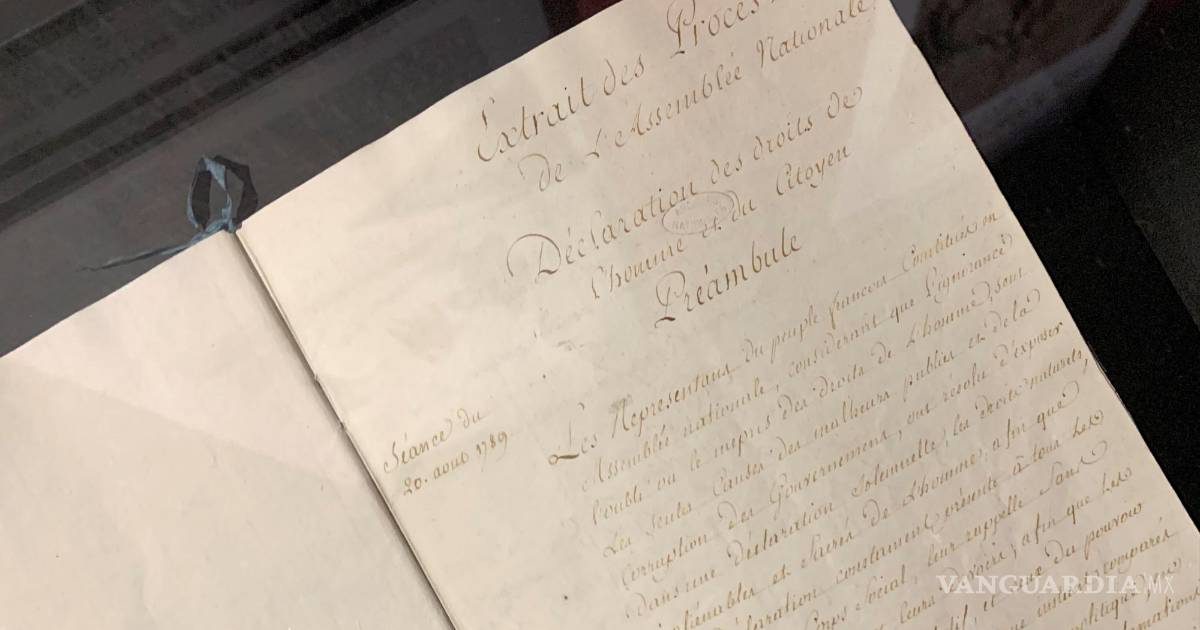 Extrait des Procès
de L'Assemblée Nationale
Déclaration des droits de
l'homme et du Citoyen
Préambule
Séance du
20. aout 1789
Les Représentans du peuple françois Constitués en
Assemblée nationale, considérant que l'ignorance
l'oubli ou le mépris des droits de L'homme, sont
Les seules Causes des malheurs publics et de la
Corruption des Gouvernemens, ont résolu d'exposer
dans une déclaration Solemnelle, les droits naturels,
inaliénables et Sacrés de L'homme; afin que
déclaration constament présente à tous les
Corps Social, leur rappelle Sans
leurs devoirs; afin que les
et du pouvoir
comparés
politique
VANGUARDIA MX